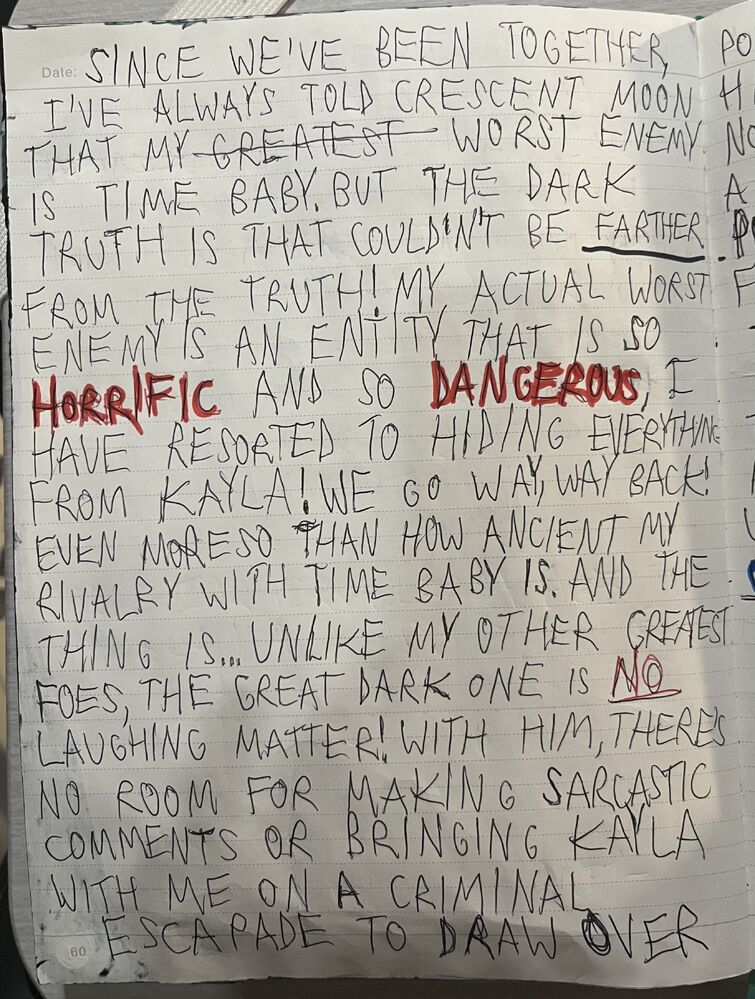 Date: SINCE WE'VE BEEN TOGETHER,
I'VE ALWAYS TOLD CRESCENT MOON
THAT MY GREATEST WORST ENEMY
IS TIME BABY. BUT THE DARK
TRUTH IS THAT COULDN'T BE FARTHER
FROM THE TRUTH! MY ACTUAL WORST
ENEMY IS AN ENTITY THAT IS SO
HORRIFIC AND SO DANGEROUS, I
HAVE RESORTED TO HIDING EVERYTHING
FROM KAYLA! WE GO WAY, WAY BACK!
EVEN MORESO THAN HOW ANCIENT MY
RIVALRY WITH TIME BABY IS. AND THE
THING IS... UNLIKE MY OTHER GREATEST
FOES, THE GREAT DARK ONE IS NO
LAUGHING MATTER! WITH HIM, THERE'S
NO ROOM FOR MAKING SARCASTIC
COMMENTS OR BRINGING KAYLA
WITH ME ON A CRIMINAL
ESCAPADE TO DRAW OVER
60